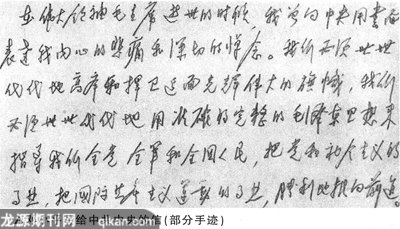 在伟大领袖毛主席逝世的时候,我曾向中央用书面
表达我内心的悲痛和深切的悼念。我们必须世世
代代地高举和捍卫这面光辉伟大的旗帜,我们
必须世世代代地用准确的完整的毛泽东思想来
指导我们全党全军和全国人民,把党和社会主义的
事业,把国际共产主义运动的事业,胜利地推向前进。
给中共中央的信(部分手迹)
龙源期刊网